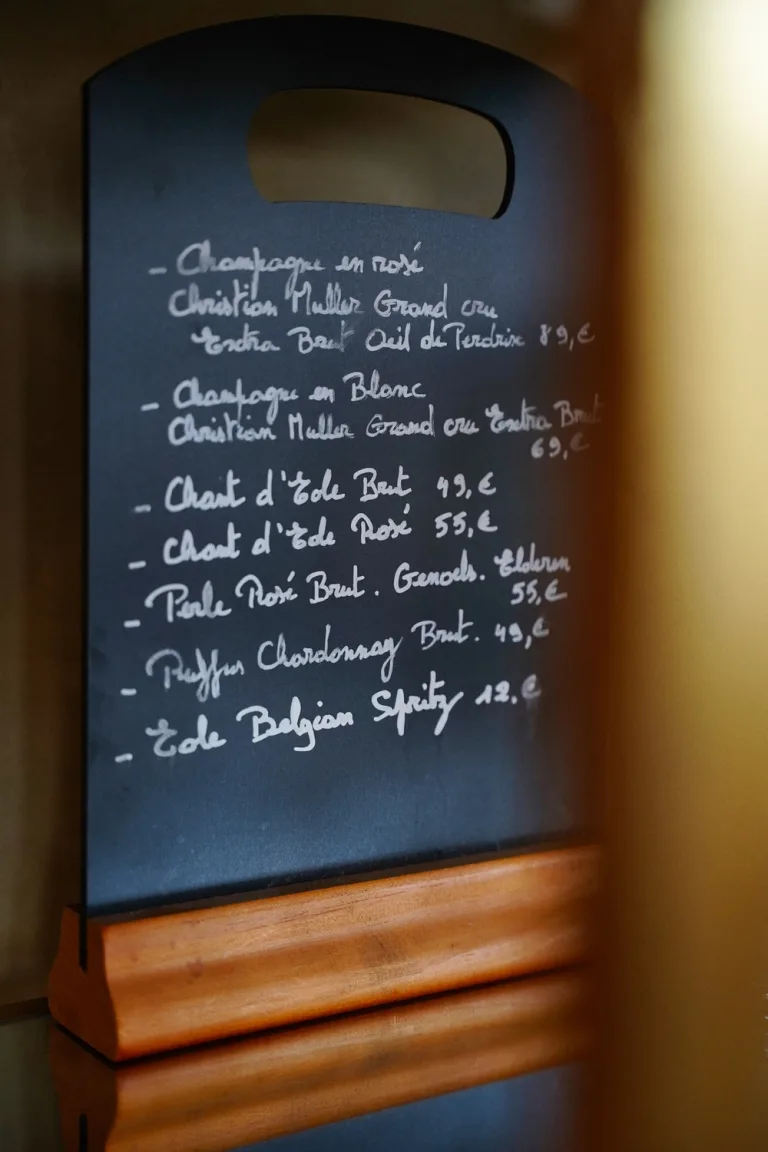 - Champagne en rosé
Christian Muller Grand cru
Extra Brut Oeil de Perdrix 89,€
- Champagne en Blanc
Christian Muller Grand cru Extra Brut
69,€
- Chant d'Eole Brut 49,€
- Chant d'Eole Rosé 55,€
- Perle Rosé Brut. Genoels. Elderen
55,€
- Ruffus Chardonnay Brut. 49,€
- Eole Belgian Spritz 12,€